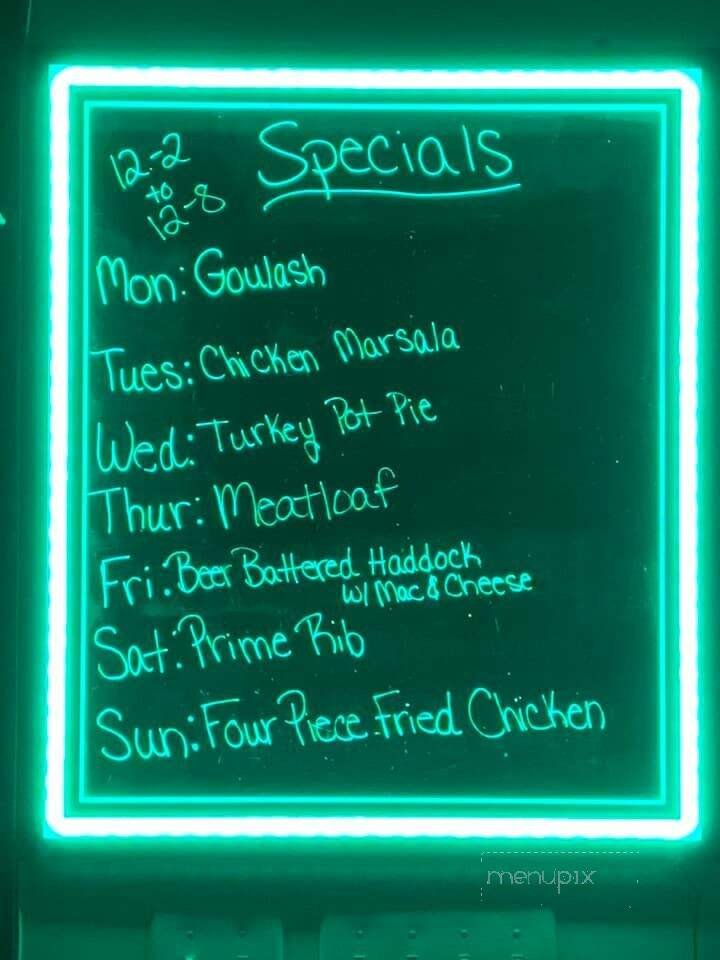 Specials
12-2
to
12-8
Mon: Goulash
Tues: Chicken Marsala
Wed: Turkey Pot Pie
Thur: Meatloaf
Fri: Beer Battered Haddock
w/ Mac & Cheese
Sat: Prime Rib
Sun: Four Piece Fried Chicken
menupix